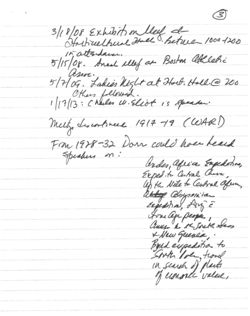 3
3/18/08 Exhibition Meet at
Horticultural Hall. Between 1000 + 1200
in attendance.
5/15/08. Annual meet at Boston Athletic
Assoc.
5/7/09. Ladies Night at Hort. Hall @ 200
Others followed.
1/17/13: Charles W. Eliot is speaker.
Meetgs discontinued 1917-19 (WAR!)
From 1928-32 Dorr could have heard
speakers on:
Andes, African Expedition,
Exped. to Central
Up the Nile to Central Africa,
Abyssinian
expedition,
Stone Age people,
in the South Seas
+ New Guinea,
Byrd expedition to
South Pole, travel
in search of plants
of economic value,